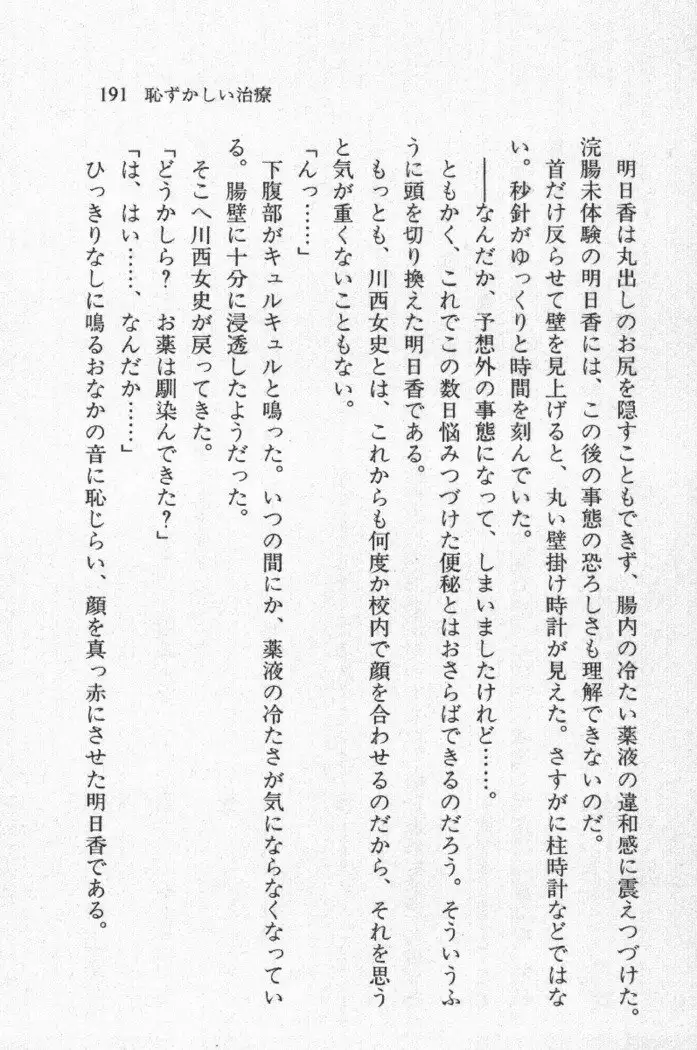 191 恥ずかしい治療
明日香は丸出しのお尻を隠すこともできず、腸内の冷たい薬液の違和感に震えつづけた。
浣腸未体験の明日香には、この後の事態の恐ろしさも理解できないのだ。
首だけ反らせて壁を見上げると、丸い壁掛け時計が見えた。さすがに柱時計などではな
い。秒針がゆっくりと時間を刻んでいた。
――なんだか、予想外の事態になって、しまいましたけれど……。
ともかく、これでこの数日悩みつづけた便秘とはおさらばできるのだろう。そういうふ
うに頭を切り換えた明日香である。
もっとも、川西女史とは、これからも何度か校内で顔を合わせるのだから、それを思う
と気が重くないこともない。
「んっ……」
下腹部がキュルキュルと鳴った。いつの間にか、薬液の冷たさが気にならなくなってい
る。腸壁に十分に浸透したようだった。
そこへ川西女史が戻ってきた。
「どうかしら？　お薬は馴染んできた？」
「は、はい……、なんだか……」
ひっきりなしに鳴るおなかの音に恥じらい、顔を真っ赤にさせた明日香である。